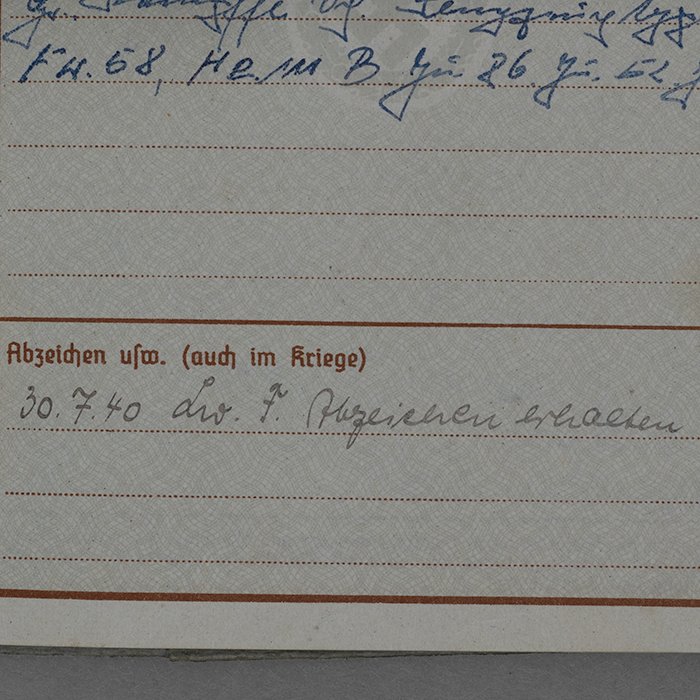 Fw. 58, He. 111 B Ju. 86. Ju. 52
Abzeichen usw. (auch im Kriege)
30.7.40 Lw. F. Abzeichen erhalten